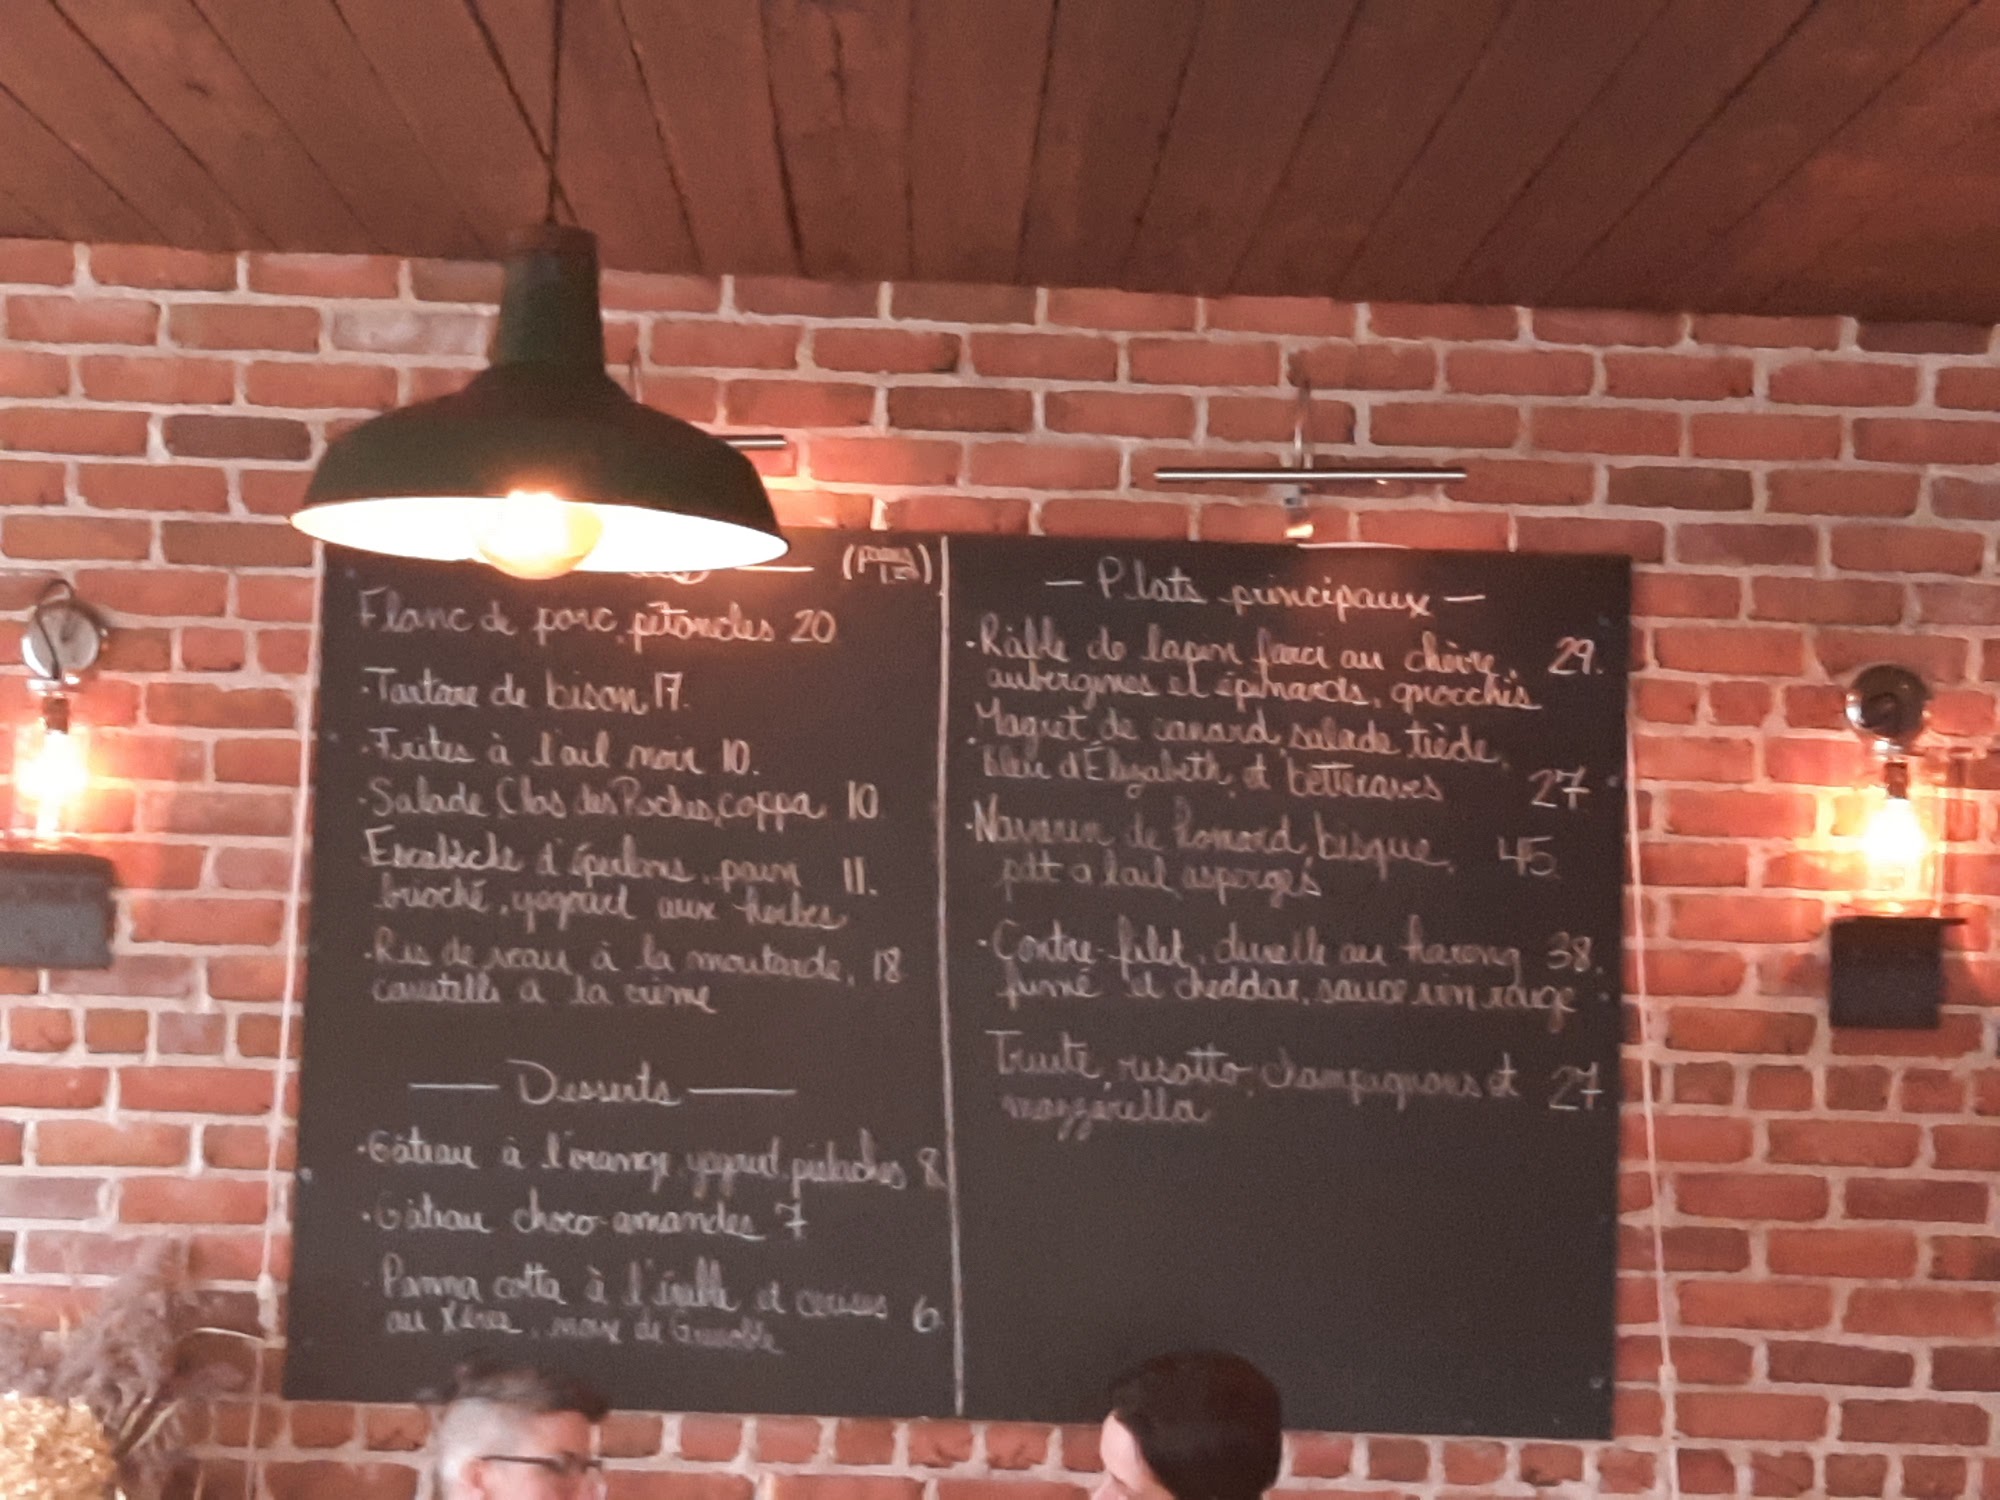 Flanc de porc, pétoncles 20
·Tartare de bison 17.
·Frites à l'ail noir 10.
·Salade, Clos des Roches, coppa 10
Escabèche d'éperlans, pain 11.
brioché, yogourt aux herbes
·Ris de veau à la moutarde, 18
cavatelli à la crème
— Desserts —
·Gâteau à l'orange, yogourt, pistaches 8
·Gâteau choco-amandes 7
·Panna cotta à l'érable et cerises 6
au Xérès, noix de Grenoble
— Plats principaux —
·Râble de lapin farci au chèvre, 29.
aubergines et épinards, gnocchis
·Magret de canard, salade tiède,
bleu d'Élizabeth, et betteraves 27
·Navarin de homard, bisque, 45
pdt à l'ail, asperges
·Contre-filet, duxelle au hareng 38.
fumé et cheddar, sauce vin rouge
Truite, risotto, champignons et 27
mozzarella